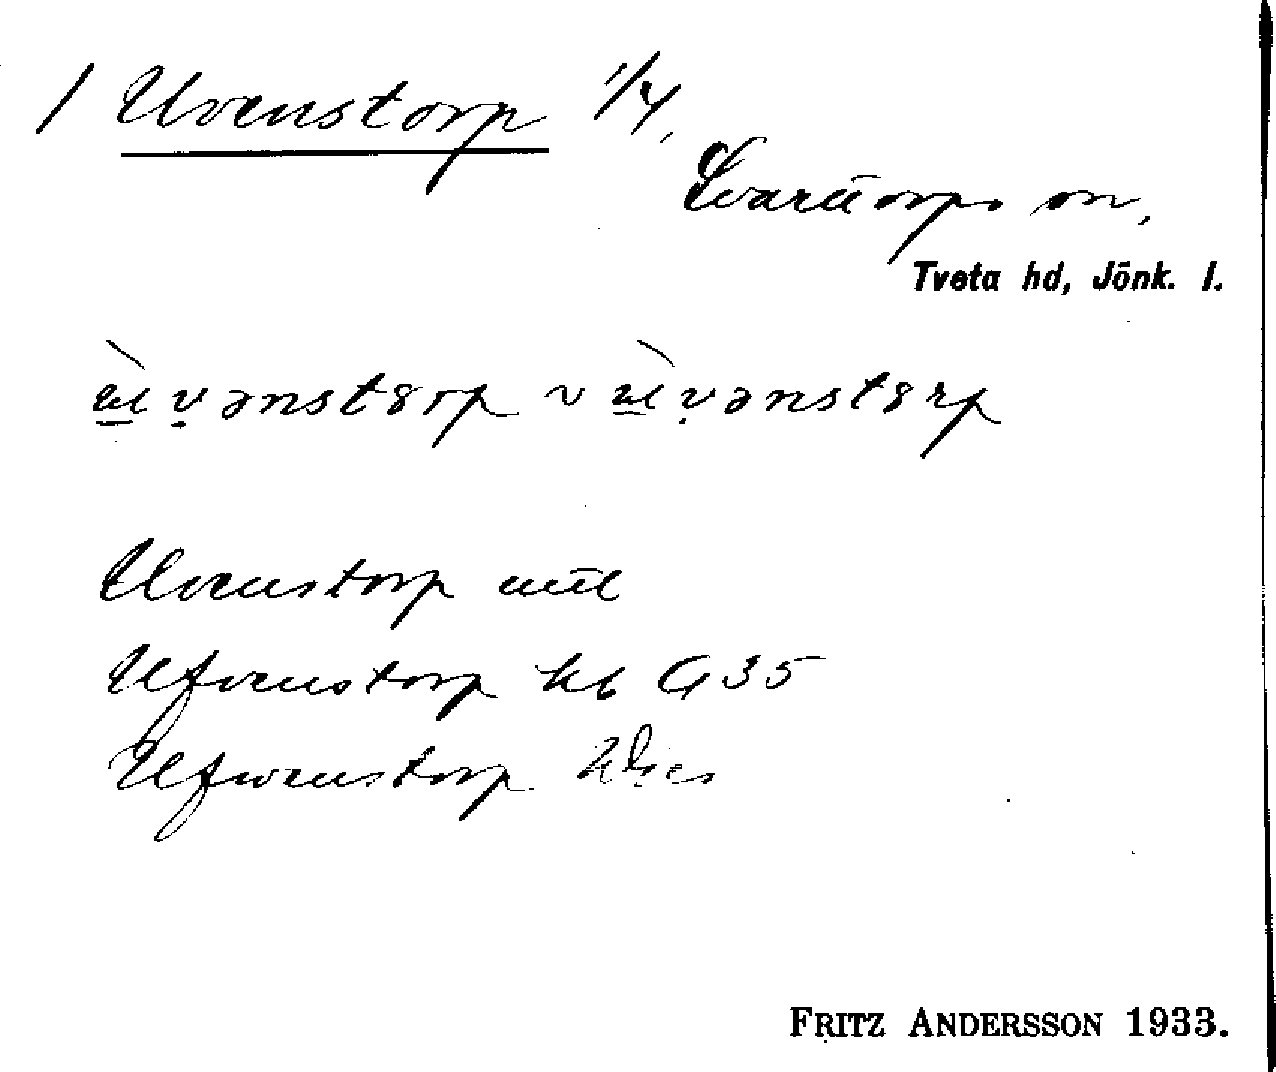 / Uvenstorp 1/4,
Svarttorps sn,
Tveta hd, Jönk. l.
ùvənstərp ~ ùvənstərp
Uvenstorp uttl
Ufvenstorp kb G 35
Ufwenstorp
FRITZ ANDERSSON 1933.